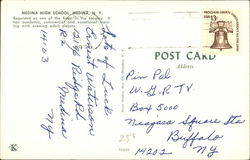 MEDINA HIGH SCHOOL, MEDINA, N. Y.
Regarded as one of the finest in the country. It
has academic, commercial and vocational
ing with evening adult classes.
Lots of Luck
Ernest Watson
Ridge Rd
R2
Medina
NY
14103
POST CARD
Address
13c
Pin Pal
W.G.R. TV
Box 5000
Niagara Square Sta
Buffalo
14202 NY
25¢
K